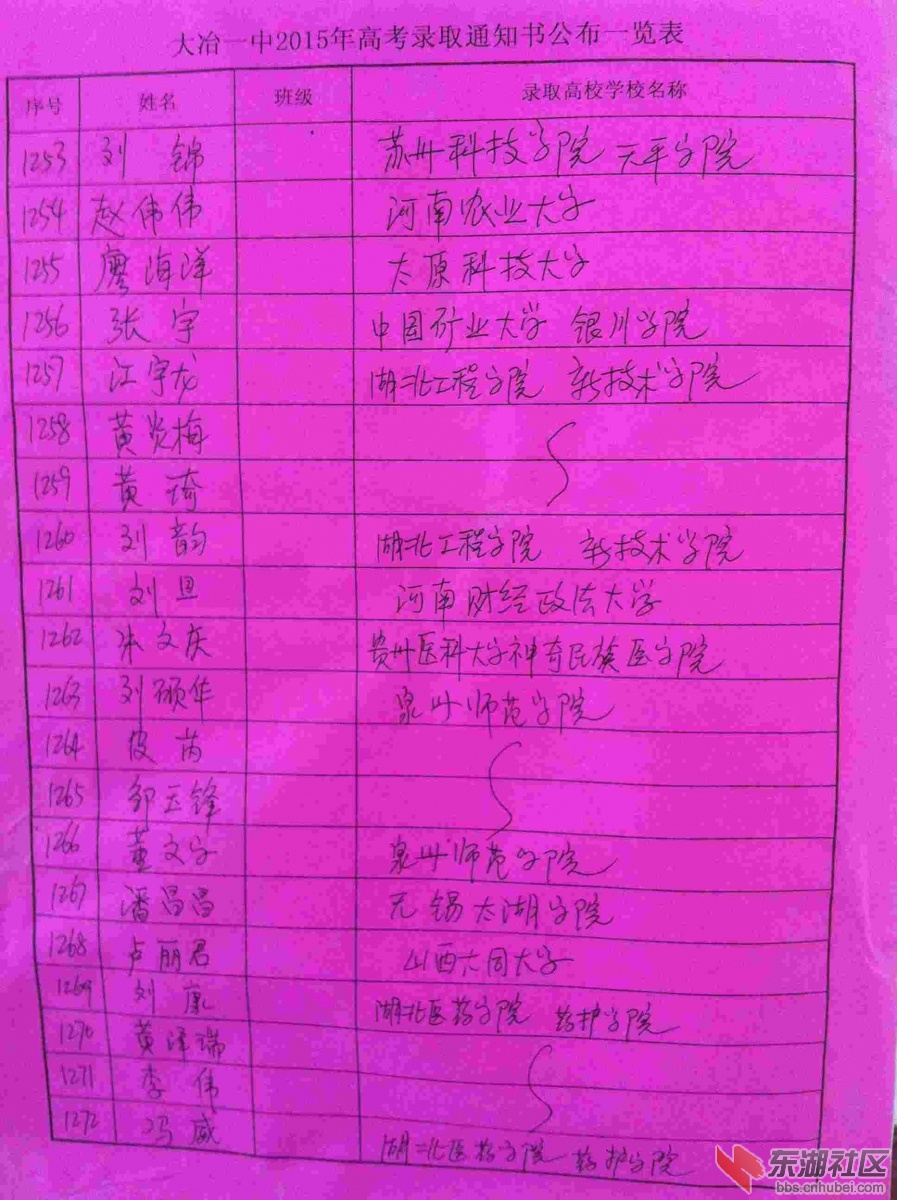 大冶一中2015年高考录取通知书公布一览表
序号 姓名 班级 录取高校学校名称
1253 刘锦 苏州科技学院 天平学院
1254 赵伟伟 河南农业大学
1255 廖海洋 太原科技大学
1256 张宇 中国矿业大学 银川学院
1257 江宇龙 湖北工程学院 新技术学院
1258 黄炎梅
1259 黄琦
1260 刘韵 湖北工程学院 新技术学院
1261 刘旦 河南财经政法大学
1262 朱文庆 贵州医科大学神奇民族医学院
1263 刘硕华 泉州师范学院
1264 皮芮
1265 邹玉锋
1266 董文宇 泉州师范学院
1267 潘昌昌 无锡太湖学院
1268 卢丽君 山西大同大学
1269 刘康 湖北医药学院 药护学院
1270 黄泽瑞
1271 李伟
1272 冯威 湖北医药学院 药护学院
东湖社区
bbs.cnhubei.com